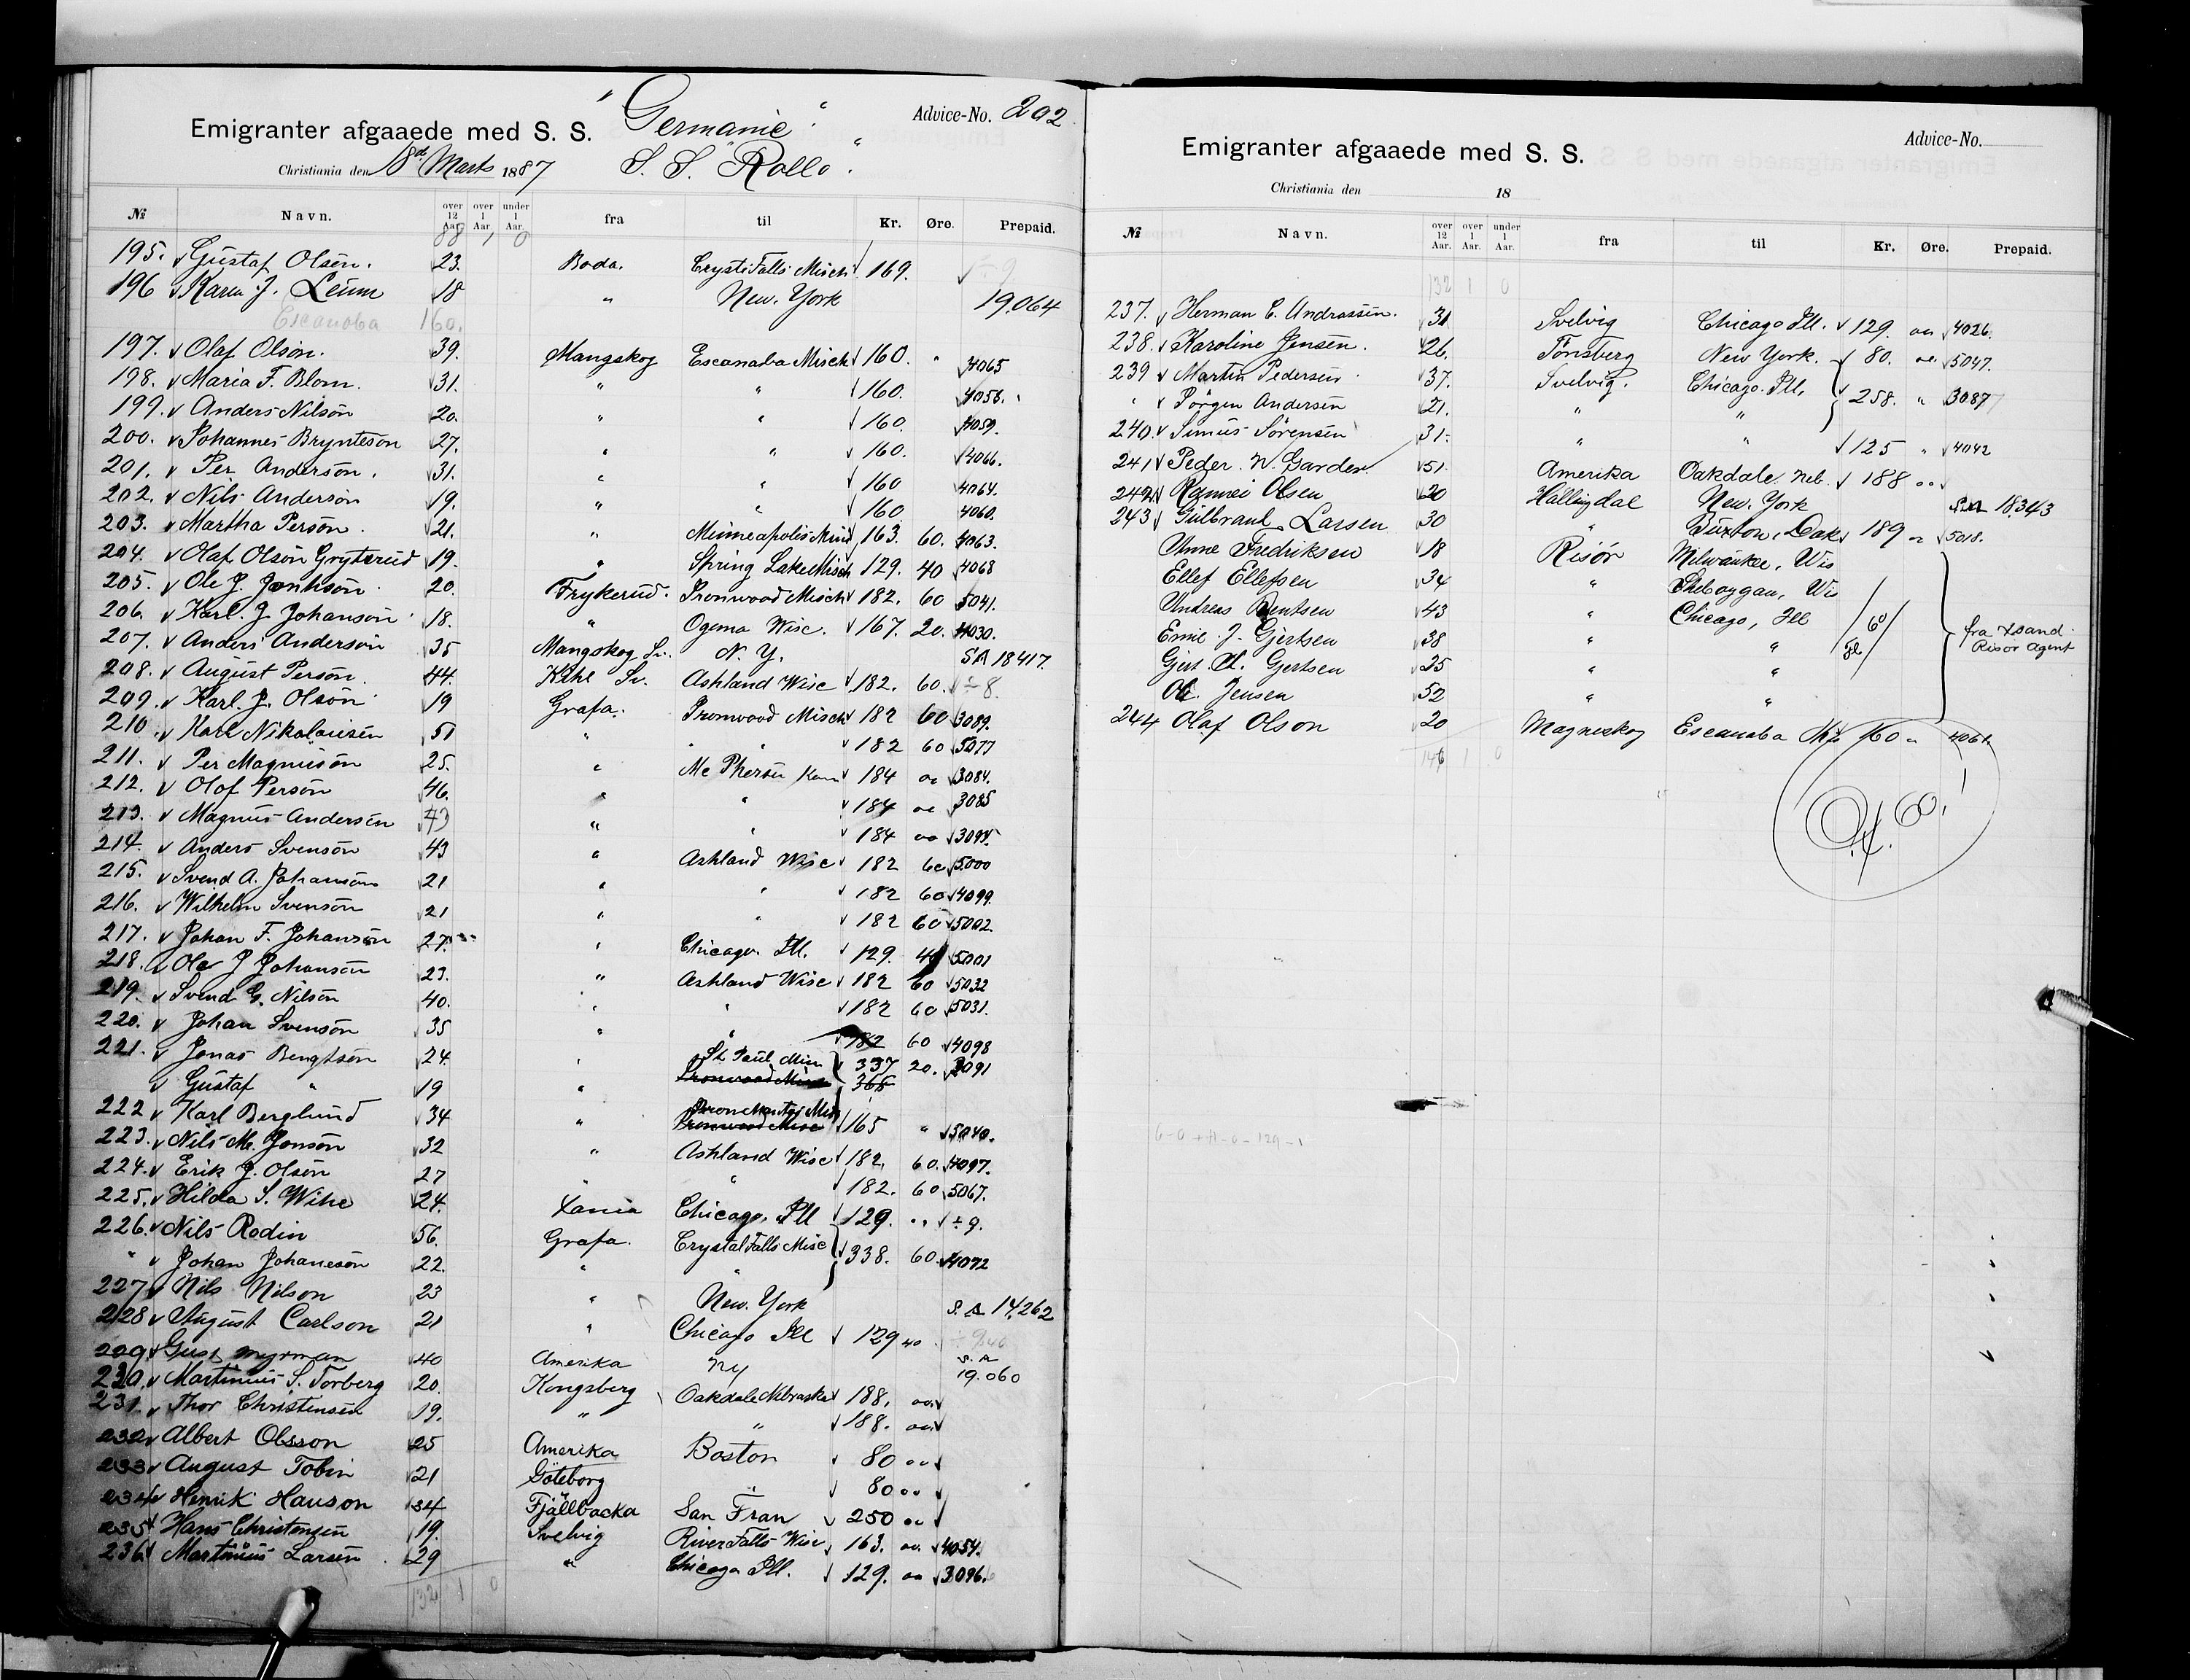 Emigranter afgaaede med S. S. "Germanic" Advice-No. 202
Christiania den 18d Marts 1887 S. S. "Rollo"
№ Navn. over 12 Aar. over 1 Aar. under 1 Aar. fra til Kr. Øre. Prepaid.
88 1 0
195. Gustaf Olsen. 23. Boda. Cryst. Falls Misch 169.
196 Karen J. Leum 18 " New. York 19,064
Escanaba 160.
197. Olaf Olson. 39. Mangskog Escanaba Misch 160. " 4065
198. Maria F. Blom. 31. " " 160. 4058.
199. Anders Nilson 20. " " 160. 4059.
200. Johannes Brynteson 27. " " 160. 4066.
201. Per Anderson. 31. " " 160 4064.
202. Nils Anderson 19. " " 160 4060.
203. Martha Person. 21. " Minneapolis Minn 163. 60. 4063.
204. Olaf Olson Gryterud 19. " Spring Lake Misch 129. 40 4068
205. Ole J. 20. Frykerud. Ironwood Misch 182. 60 5041.
206. Karl. J. Johanson 18. " Ogema Wisc. 167. 20. 4030.
207. Anders Anderson 35 Mangskog Sv. N. Y. SA 18417.
208. August Person. 44. Kihl Sv. Ashland Wisc 182. 60. ÷ 8.
209. Karl. J. Olson 19 Grafa. Ironwood Misch 182 60 3089.
210. Karl Nikolaisen 51 " " " 182 60 5077
211. Per Magnuson 25. " Mc Pherson Kans 184 oo 3084.
212. Olof Person 46. " " 184 oo 3085
213. Magnus Andersen 43 " " 184 oo 3094.
214. Anders Svenson 43 " Ashland Wisc 182 60 5000
215. Svend A. Johanson 21 " " 182 60 4099.
216. Wilhelm Svenson 21 " " 182 60 5002.
217. Johan F. Johanson 27. " Chicago. Ill. 129. 40 5001
218. Ole J Johanson 23. " Ashland Wisc 182 60 5032
219. Svend G. Nilson 40. " " 182 60 5031.
220. Johan Svenson 35 " " 182 60 4098
221. Jonas Bengtson 24. " St. Paul Min 337 20. 3091
Gustaf " 19 " Ironwood 365
222 Karl Berglund 34 " Iron 165 " 5040.
223. Nils M. Jonson 32 " Ashland Wisc 182. 60. 4097.
224. Erik J. Olson 27 " " 182. 60 5067.
225. Hilda S. Wihe 24. Xania Chicago, Ill 129. " ÷ 9.
226. Nils Rodin 56. Grafa. Crystal Falls Misc 338. 60. 4072
" " Johan Johaneson 22. " "
227 Nils Nilson 23 " New. York S. A 14,262
228 August Carlson 21 " Chicago Ill 129 40
229 Gust myrman 40 Amerika NY S. A 19.060
230. Martinius S. Torberg 20. Kongsberg Oakdale Nebraska 188. oo
231. Thor Christensen 19. " " 188. oo
232 Albert Olsson 25 Amerika Boston 80 oo
233 August Tobin 21 Göteborg " 80 oo
234 Henrik Hanson 34 Fjällbacka San Fran 250 oo
235 Hans Christensen 19. Svelvig River Falls Wisc 163. oo 4054.
236 Martinius Larsen. 29 " Chicago Ill. 129. oo 3096.
132 1 0
Emigranter afgaaede med S. S. Advice-No.
Christiania den 18
№ Navn. over 12 Aar. over 1 Aar. under 1 Aar. fra til Kr. Øre. Prepaid.
132 1 0
237. Herman C. Andrassen. 31 Svelvig Chicago Ill. 129. oo 4026.
238. Karoline Jensen. 26. Tönsberg New York. 80. oo 5047.
239 Martin Pedersen 37. Svelvig. Chicago. Ill. 258. " 3087
" Jörgen Andersen 21. " "
240. Simius Sörensen 31. " " 125 " 4042
241 Peder. N. Garder. 51. Amerika Oakdale, Neb. 188 oo
242. Olsen 20 Hallingdal New. York S.A 18343
243 Gulbrand Larsen 30 " Buxton, Dak 189 " 5018.
Anne Fredriksen 18 Risör Milwaukee, Wis
Ellef Ellefsen 34 " Sheboygan, Wis
Andreas Bentsen 43 " Chicago, Ill
Emil. J. Gjertsen 38 " "
Gjert. A. Gjertsen 25 " "
Ol. Jensen 52 " "
fra Xsand
Risör Agent
244 Olaf Olson 20 Magneskog Escanaba 160 " 4061.
146 1 0
60.
6-0 + 71-0-129-1